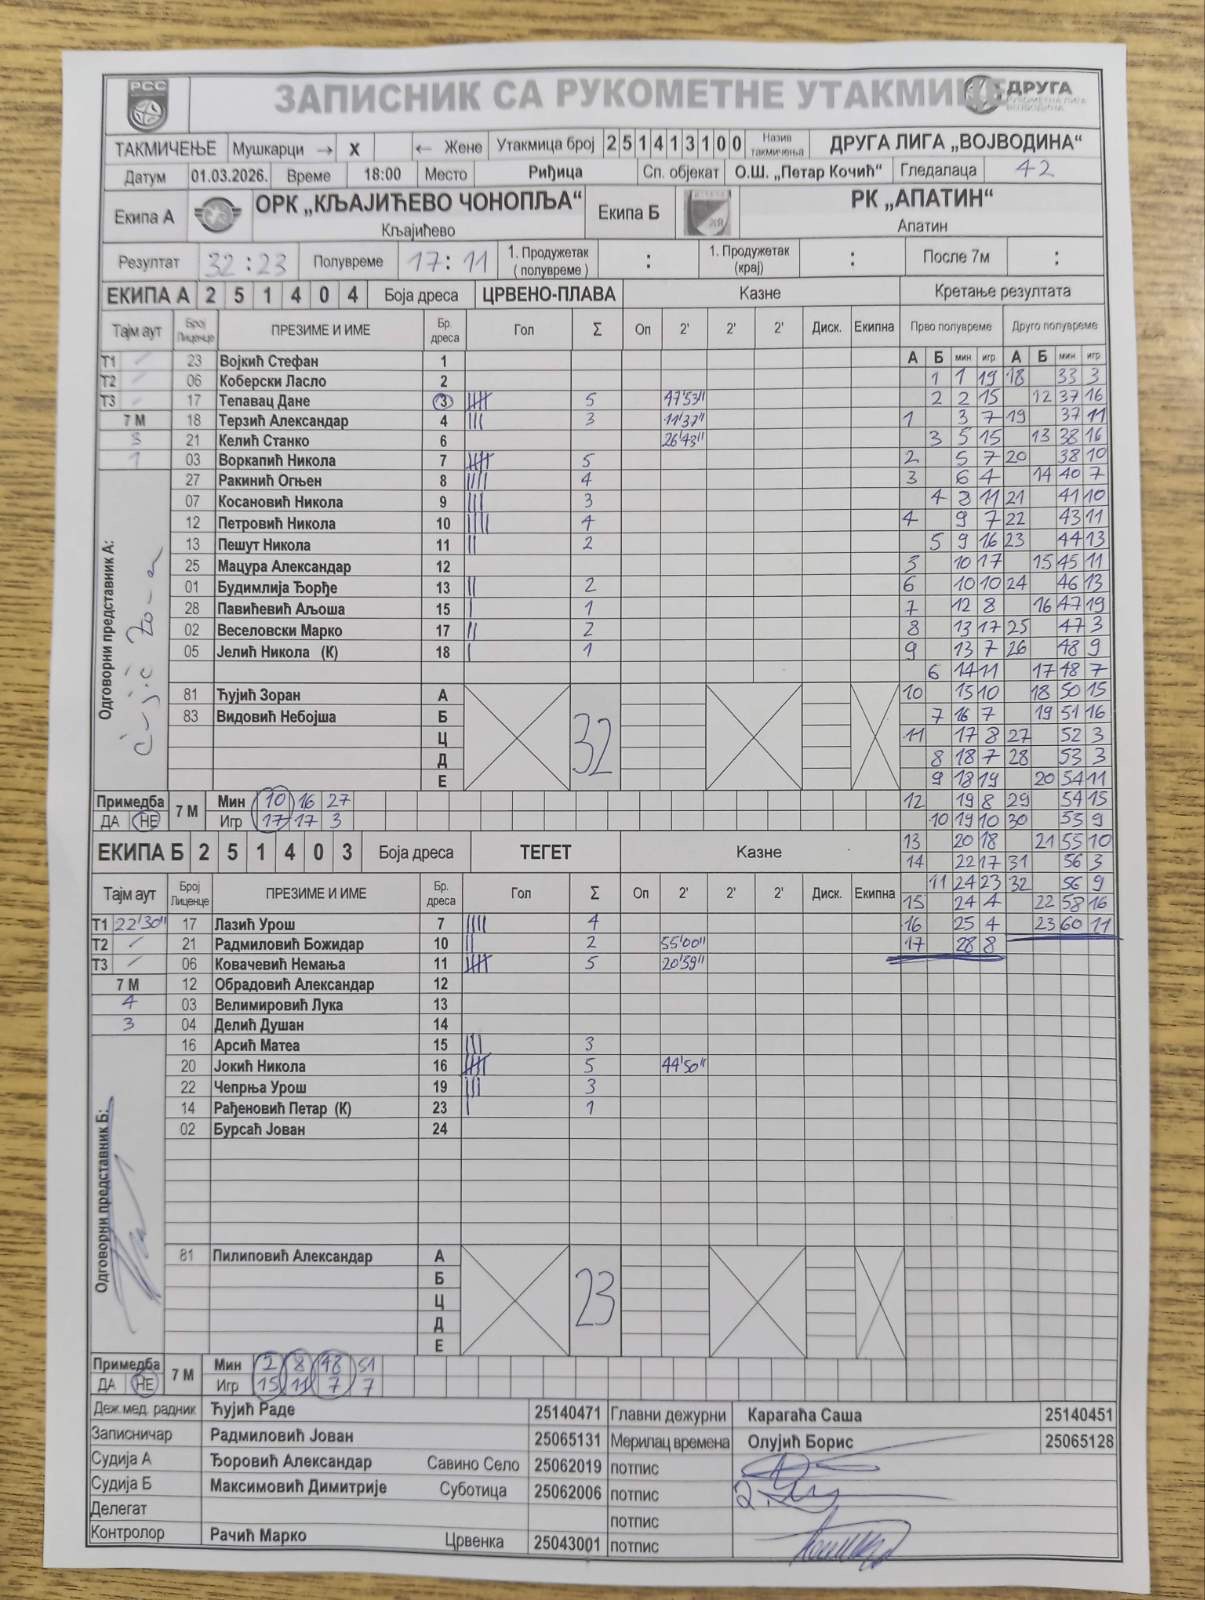 РСС
ЗАПИСНИК СА РУКОМЕТНЕ УТАКМИЦЕ
ДРУГА
РУКОМЕТНА ЛИГА
ВОЈВОДИНА
ТАКМИЧЕЊЕ Мушкарци → X ← Жене Утакмица број 2 5 1 4 1 3 1 0 0 Назив такмичења ДРУГА ЛИГА „ВОЈВОДИНА“
Датум 01.03.2026. Време 18:00 Место Риђица Сп. објекат О.Ш. „Петар Кочић“ Гледалаца 42
Екипа А ОРК „КЉАЈИЋЕВО ЧОНОПЉА“ Кљајићево Екипа Б РК „АПАТИН“ Апатин
Резултат 32 : 23 Полувреме 17 : 11 1. Продужетак (полувреме) : 1. Продужетак (крај) : После 7м :
ЕКИПА А 2 5 1 4 0 4 Боја дреса ЦРВЕНО-ПЛАВА Казне Кретање резултата
Тајм аут Број Лиценце ПРЕЗИМЕ И ИМЕ Бр. дреса Гол Σ Оп 2' 2' 2' Диск. Екипна Прво полувреме Друго полувреме
А Б мин игр А Б мин игр
Т1 / 23 Војкић Стефан 1
1 1 19 18 33 3
Т2 / 06 Коберски Ласло 2
2 2 15 12 37 16
Т3 / 17 Тепавац Дане 3 5 47'53"
1 3 7 19 37 11
7 М 18 Терзић Александар 4 3 11'37"
3 5 15 13 38 16
3 21 Келић Станко 6 26'43"
2 5 7 20 38 10
1 03 Воркапић Никола 7 5
3 6 4 14 40 7
27 Ракинић Огњен 8 4
4 8 11 21 41 10
07 Косановић Никола 9 3
4 9 7 22 43 11
12 Петровић Никола 10 4
5 9 16 23 44 13
13 Пешут Никола 11 2
5 10 17 15 45 11
25 Мацура Александар 12
6 10 10 24 46 13
01 Будимлија Ђорђе 13 2
7 12 8 16 47 19
28 Павићевић Аљоша 15 1
8 13 17 25 47 3
02 Веселовски Марко 17 2
9 13 7 26 48 9
05 Јелић Никола (К) 18 1
6 14 11 17 48 7
Одговорни представник А:
10 15 10 18 50 15
81 Ћујић Зоран А
7 16 7 19 51 16
83 Видовић Небојша Б 32
11 17 8 27 52 3
Ц
8 18 7 28 53 3
Д
9 18 19 20 54 11
Е
12 19 8 29 54 15
Примедба 7 М Мин 10 16 27
10 19 10 30 55 9
ДА НЕ Игр 17 17 3
13 20 18 21 55 10
ЕКИПА Б 2 5 1 4 0 3 Боја дреса ТЕГЕТ Казне
14 22 17 31 56 3
11 24 23 32 56 9
Тајм аут Број Лиценце ПРЕЗИМЕ И ИМЕ Бр. дреса Гол Σ Оп 2' 2' 2' Диск. Екипна
15 24 4 22 58 16
Т1 22'30" 17 Лазић Урош 7 4
16 25 4 23 60 11
Т2 / 21 Радмиловић Божидар 10 2 55'00"
17 28 8
Т3 / 06 Ковачевић Немања 11 5 20'39"
7 М 12 Обрадовић Александар 12
4 03 Велимировић Лука 13
3 04 Делић Душан 14
16 Арсић Матеа 15 3
20 Јокић Никола 16 5 44'50"
22 Чепрња Урош 19 3
14 Рађеновић Петар (К) 23 1
02 Бурсаћ Јован 24
Одговорни представник Б:
81 Пилиповић Александар А
Б 23
Ц
Д
Е
Примедба 7 М Мин 2 8 48 51
ДА НЕ Игр 15 11 7 7
Деж.мед. радник Ћујић Раде 25140471 Главни дежурни Карагаћа Саша 25140451
Записничар Радмиловић Јован 25065131 Мерилац времена Олујић Борис 25065128
Судија А Ђоровић Александар Савино Село 25062019 потпис
Судија Б Максимовић Димитрије Суботица 25062006 потпис
Делегат потпис
Контролор Рачић Марко Црвенка 25043001 потпис